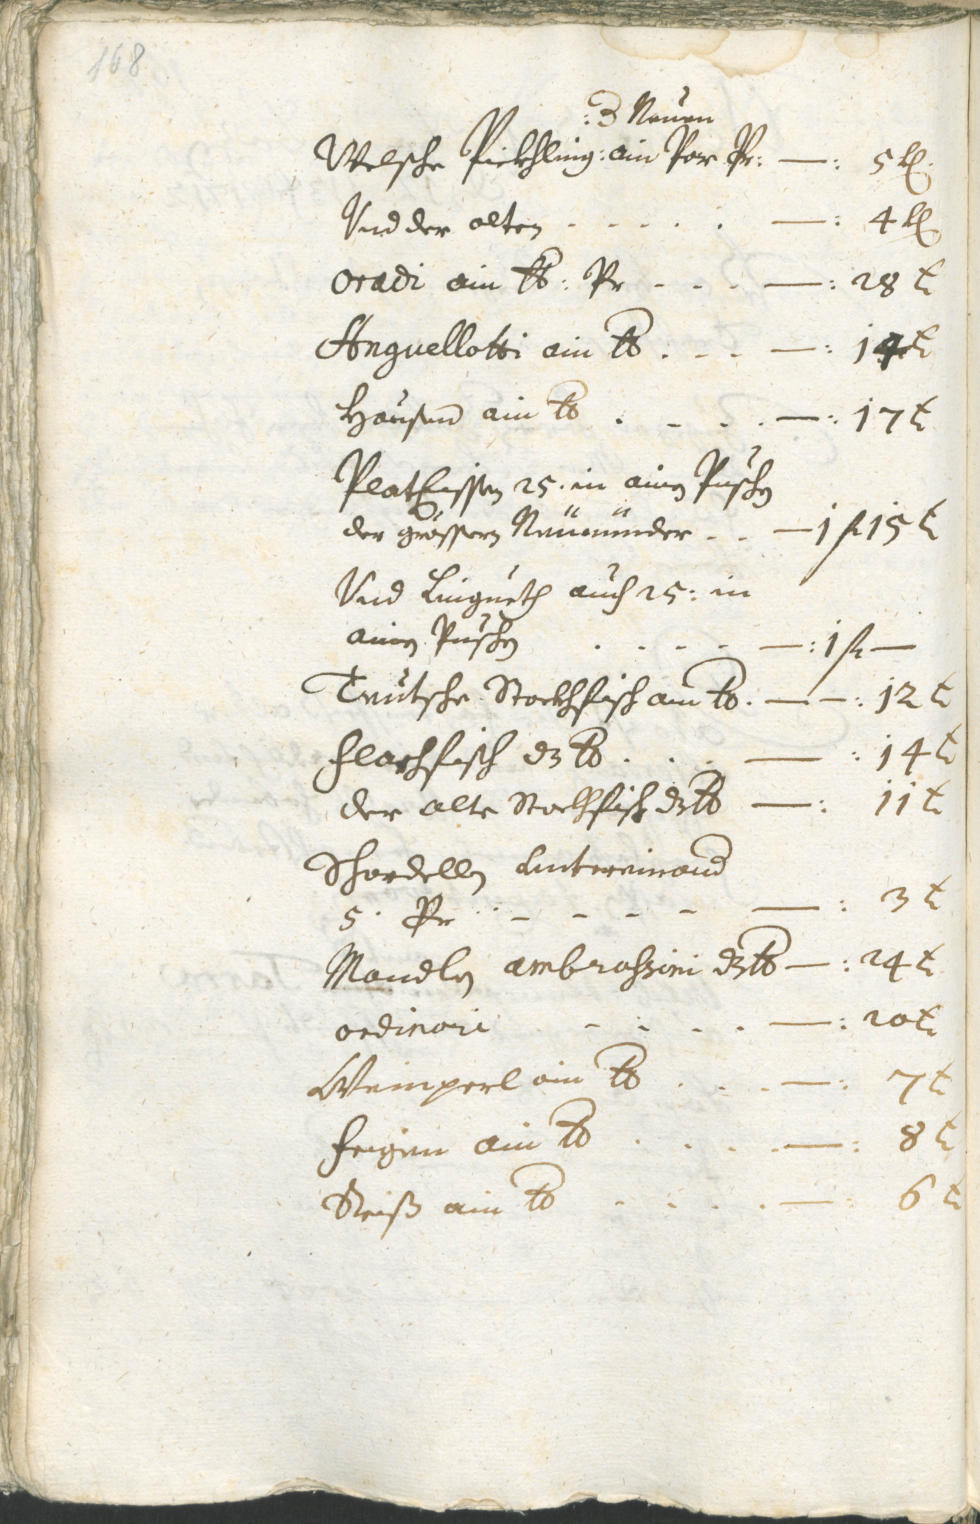 168
: 3 Neuen
Welsche Pickhling: ain Par Pr: —: 5 kr
Vnd der alten - - - - - . —: 4 kr
oradi ain lb: Pr - - - —: 28 kr
Anguellotti ain lb . - - —: 14 kr
Hausen ain lb . - - . —: 17 kr
Plateissen 25. in ainen Puschen
der grössern Neümünder - - — 1 fl 15 kr
Vnd Lingueth auch 25: in
ainen Puschen . - - - - —: 1 fl —
Teutsche Stockhfisch ain lb. — —: 12 kr
Flachfisch dz lb . . . — : 14 kr
der alte Stockhfisch dz lb —: 11 kr
Schardellen Untereinand
5. Pr - - - - — : 3 kr
Mandlen ambrossini dz lb —: 24 kr
ordinari - - - . —: 20 kr
Weinperl ain lb . . . —: 7 kr
Feigen ain lb . . . . —: 8 kr
Reiß ain lb . . . . — : 6 kr